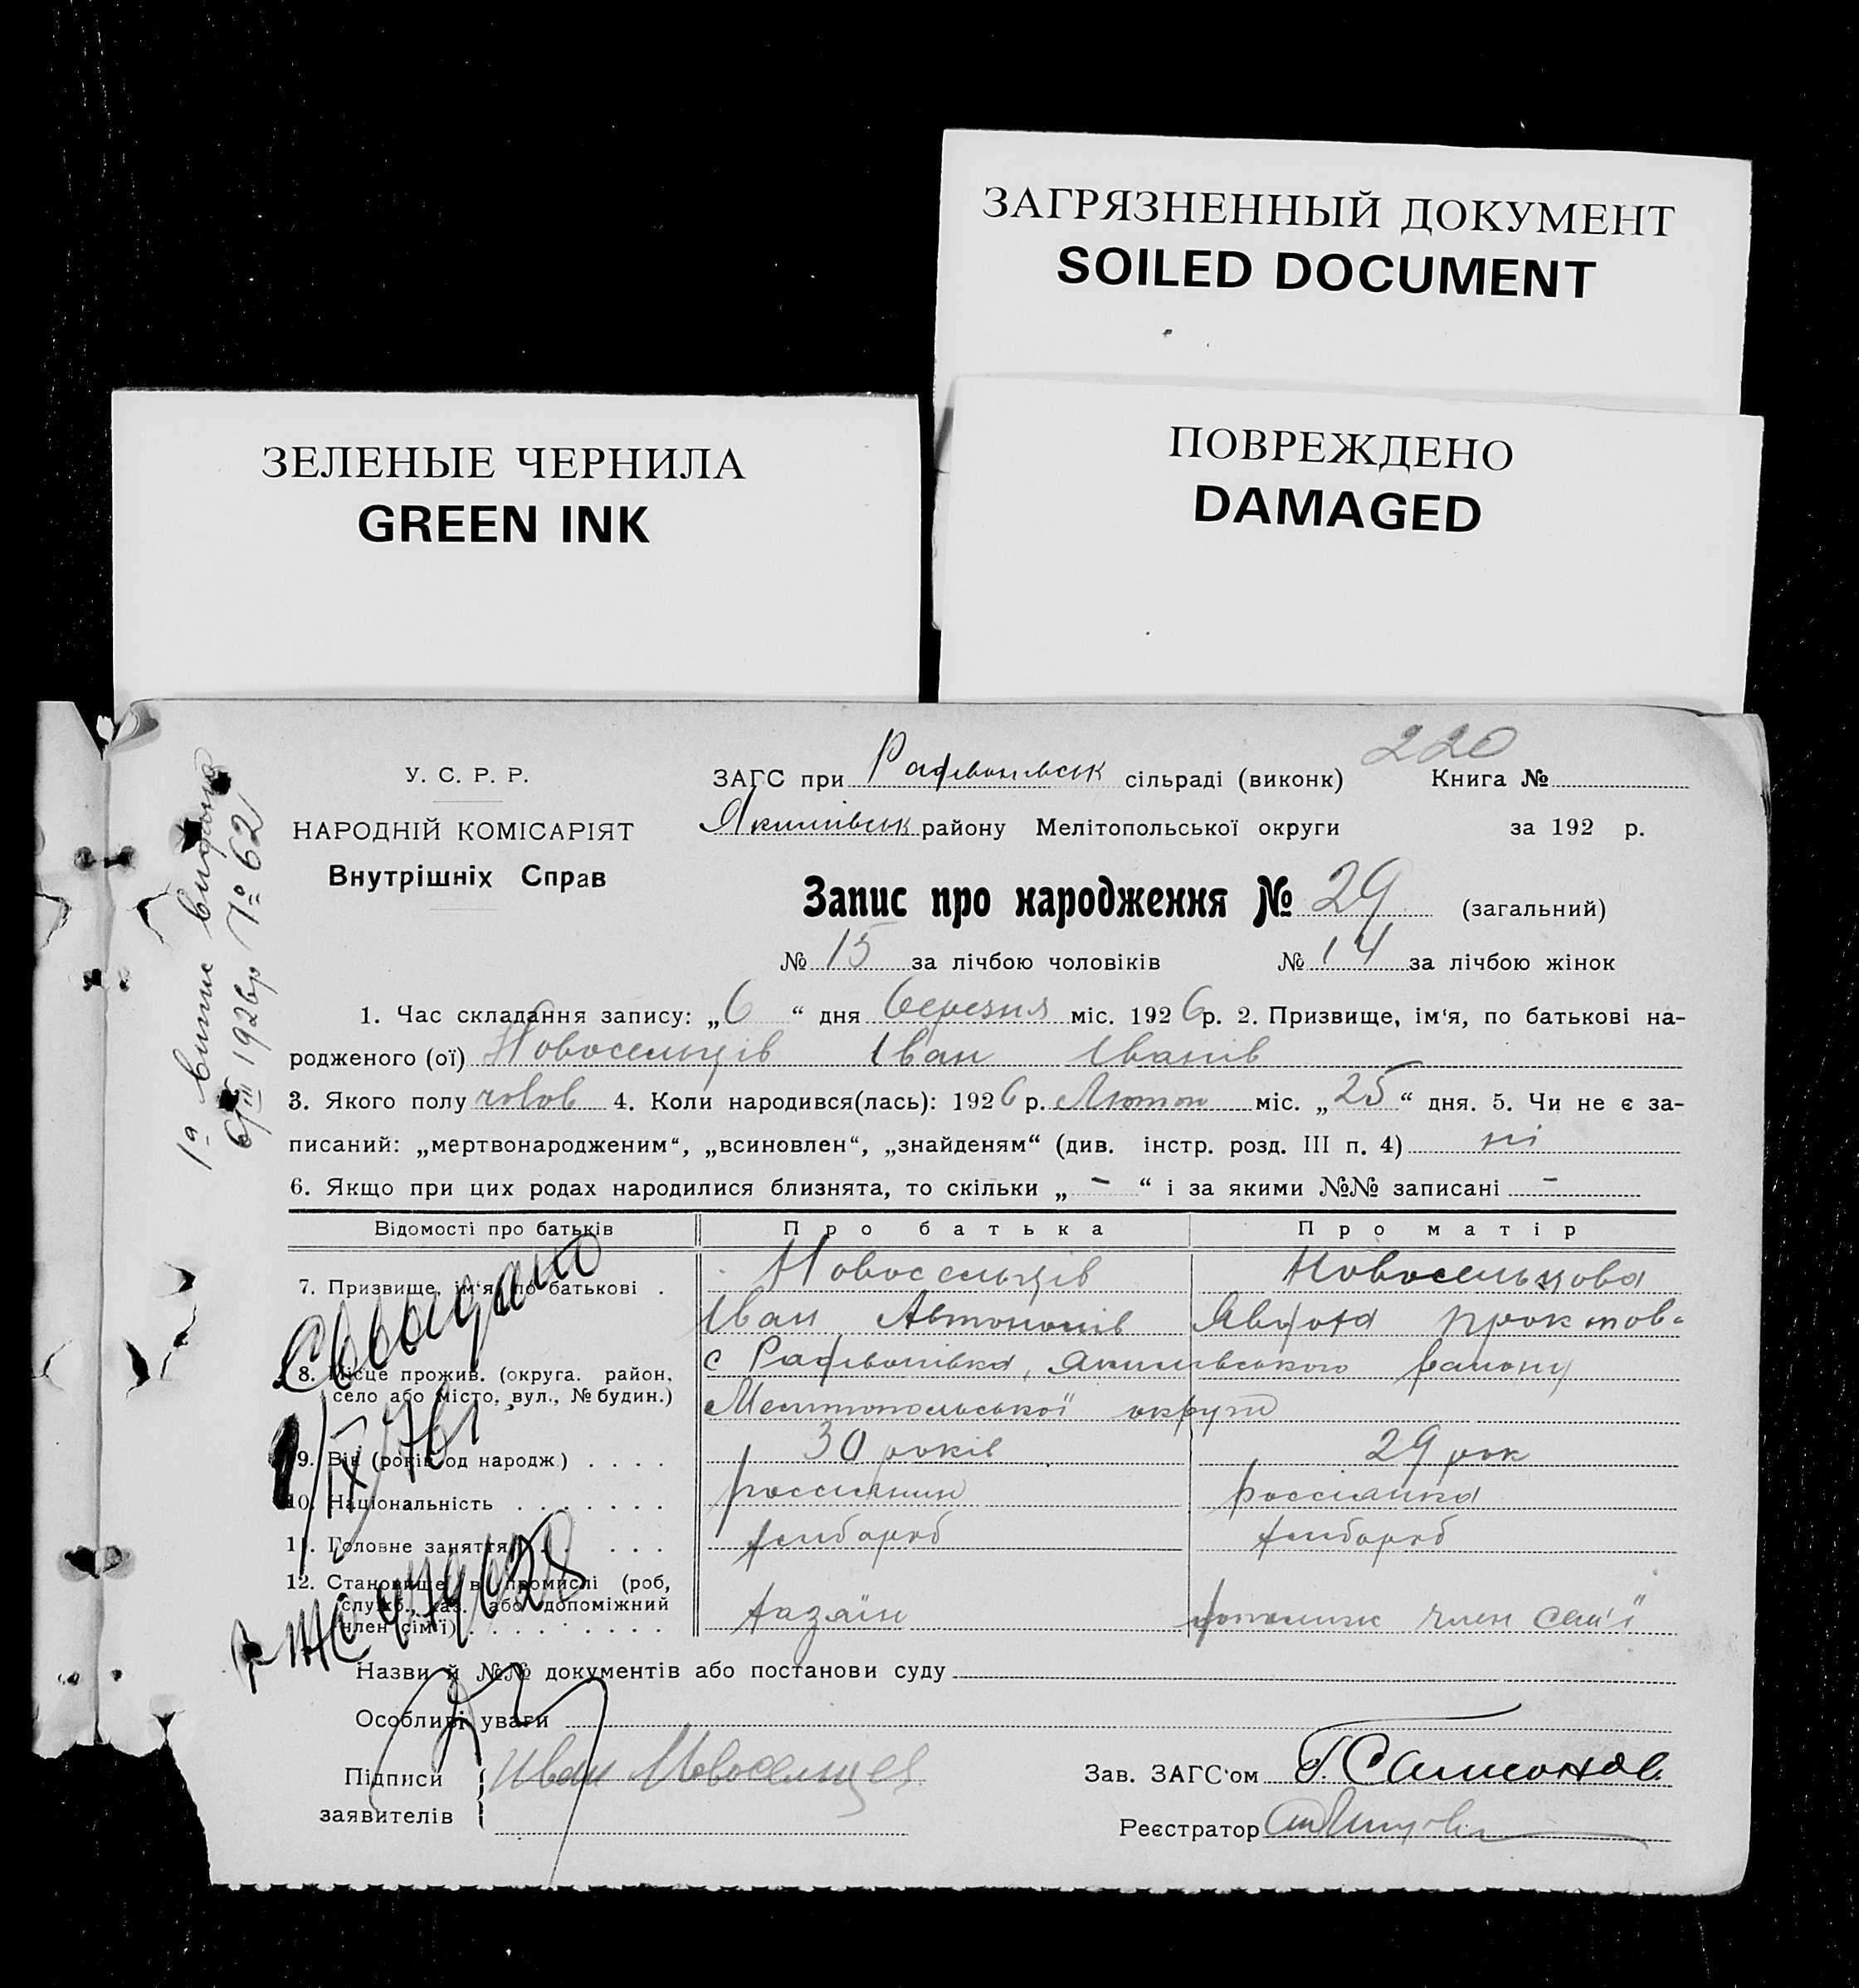 ЗАГРЯЗНЕННЫЙ ДОКУМЕНТ
SOILED DOCUMENT
ЗЕЛЕНЫЕ ЧЕРНИЛА
GREEN INK
ПОВРЕЖДЕНО
DAMAGED
220
У. С. Р. Р.
НАРОДНІЙ КОМІСАРІЯТ
Внутрішніх Справ
ЗАГС при сільраді (виконк) Книга №
Якимівськ району Мелітопольської округи за 192 р.
Запис про народження № 29 (загальний)
№ 15 за лічбою чоловіків № 14 за лічбою жінок
1. Час складання запису: „6“ дня березня міс. 1926р. 2. Призвище, ім‘я, по батькові на-
родженого (ої) Новосельців Іван Іванів
3. Якого полу чолов 4. Коли народився(лась): 1926 р. Лютого міс. „25“ дня. 5. Чи не є за-
писаний: „мертвонародженим“, „всиновлен“, „знайденям“ (див. інстр. розд. III п. 4) ні
6. Якщо при цих родах народилися близнята, то скільки „ - “ і за якими №№ записані -
Відомості про батьків Про батька Про матір
7. Призвище, ім‘я, по батькові . Новосельців Новосельцова
Іван Автономів
8. Місце прожив. (округа. район, с
село або місто, вул., № будин.) Мелітопольської округи
9. Вік (років од народж.) . . . . 30 років 29 рок
10. Національність . . . . . . . россиянин россіанка
11. Головне заняття . . . . . . хлібороб хлібороб
12. Становище в промислі (роб,
служб., хаз. або допоміжний хазаїн член сем'ї
член сім‘ї) . . . . . . . . .
Назви й №№ документів або постанови суду
Особливі уваги
Підписи Иван Новоселицев Зав. ЗАГС‘ом
заявителів Реєстратор
1а випис видано
6/III 1926р № 62